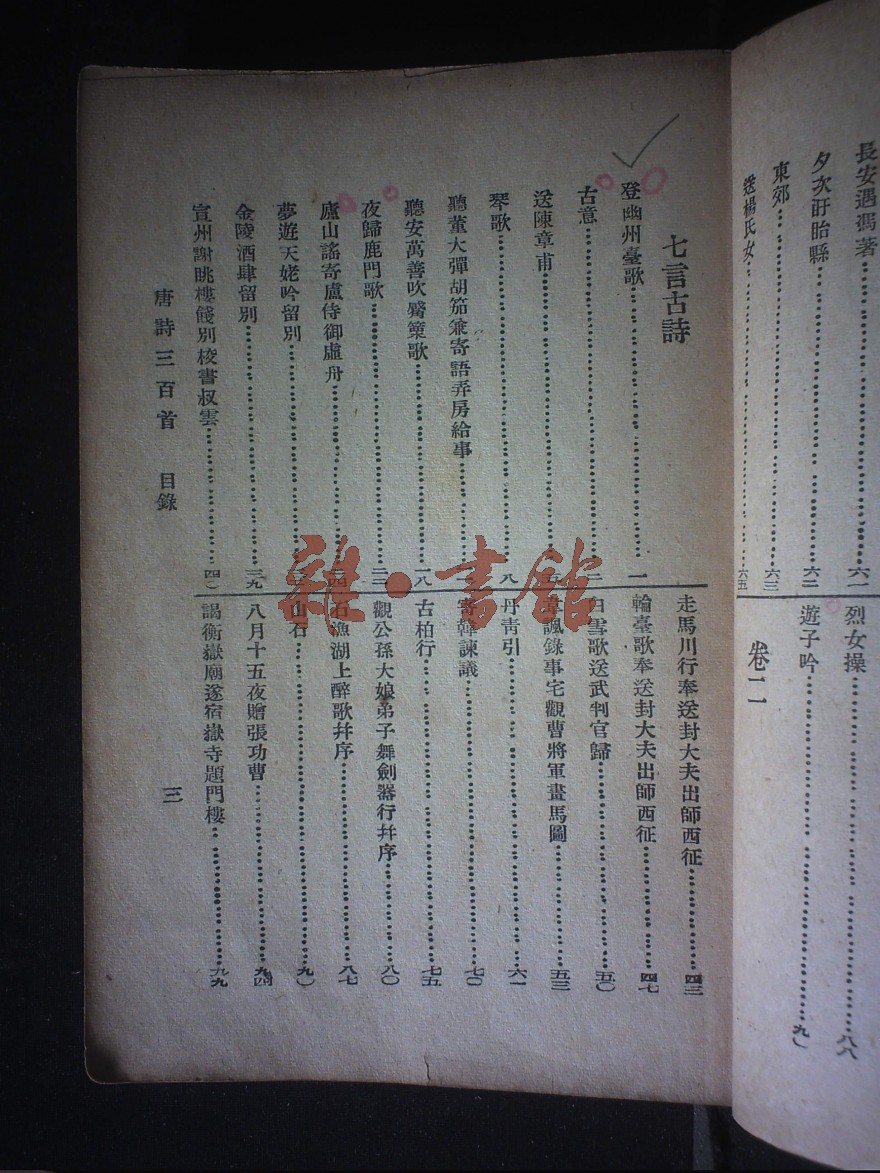 長安遇馮著……六一
夕次盱眙縣……六二
東郊……六三
送楊氏女……六五
烈女操……八八
遊子吟……九〇
卷二
七言古詩
登幽州臺歌……一
古意……二
送陳章甫……五
琴歌……八
聽董大彈胡笳兼寄語弄房給事……
聽安萬善吹觱篥歌……一八
夜歸鹿門歌……二二
廬山謠寄盧侍御虛舟……二四
夢遊天姥吟留別……
金陵酒肆留別……三九
宣州謝朓樓餞別校書叔雲……四〇
走馬川行奉送封大夫出師西征……四三
輪臺歌奉送封大夫出師西征……四七
白雪歌送武判官歸……五〇
韋諷錄事宅觀曹將軍畫馬圖……五三
丹青引……六一
寄韓諫議……七〇
古柏行……七五
觀公孫大娘弟子舞劍器行幷序……八〇
石漁湖上醉歌幷序……八七
山石……九〇
八月十五夜贈張功曹……九四
謁衡嶽廟遂宿嶽寺題門樓……九九
唐詩三百首 目錄
三
雜·書館